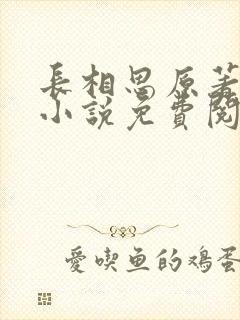 長相思原著
小說免費閱
愛喫魚的鸡蛋